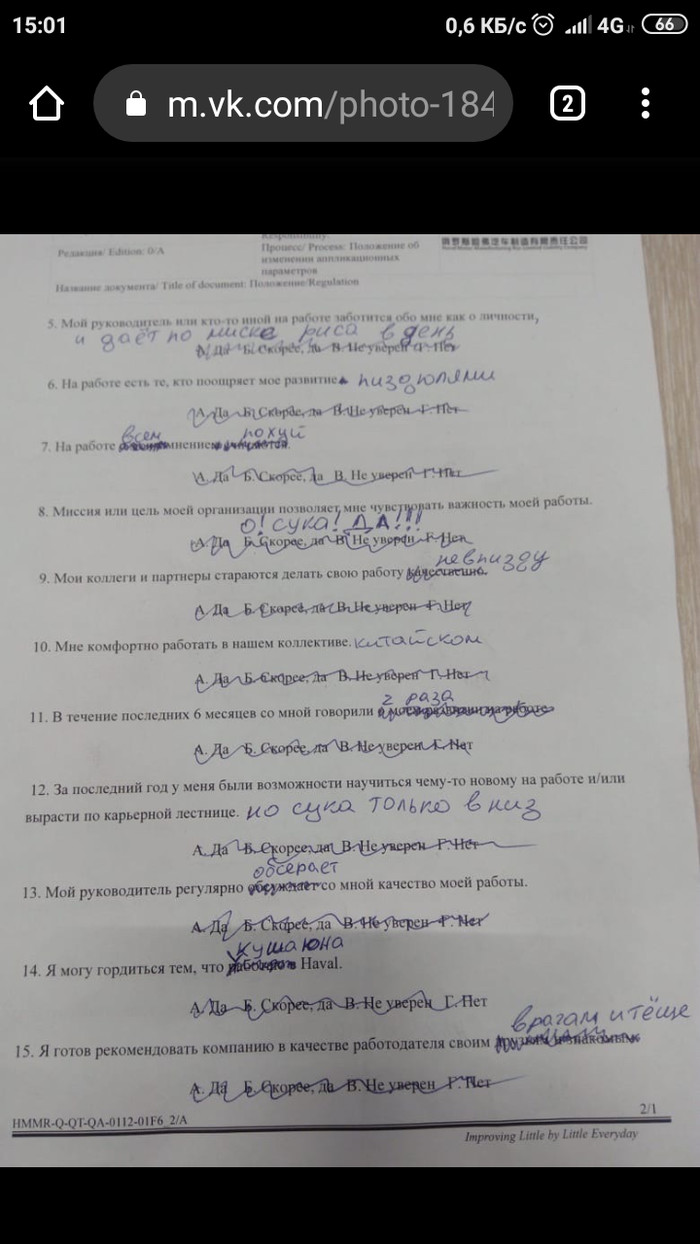 15:01 0,6 КБ/с 4G 66
m.vk.com/photo-184 2
Редакция/ Edition: 0/A
Процесс/ Process: Положение об
изменении аппликационных
параметров
Название документа/ Title of document: Положение/Regulation
5. Мой руководитель или кто-то иной на работе заботится обо мне как о личности,
и даёт по миске риса в день
А. Да Б. Скорее, да В. Не уверен Г. Нет
6. На работе есть те, кто поощряет мое развитие пиздюлями
А. Да Б. Скорее, да В. Не уверен Г. Нет
всем похуй
7. На работе мнение
А. Да Б. Скорее, да В. Не уверен Г. Нет
8. Миссия или цель моей организации позволяет мне чувствовать важность моей работы.
О! сука! ДА!!!
А. Да Б. Скорее, да В. Не уверен Г. Нет
невпизду
9. Мои коллеги и партнеры стараются делать свою работу качественно.
А. Да Б. Скорее, да В. Не уверен Г. Нет
10. Мне комфортно работать в нашем коллективе. китайском
А. Да Б. Скорее, да В. Не уверен Г. Нет
2 раза
11. В течение последних 6 месяцев со мной говорили о моем развитии на работе
А. Да Б. Скорее, да В. Не уверен Г. Нет
12. За последний год у меня были возможности научиться чему-то новому на работе и/или
вырасти по карьерной лестнице. но сука только вниз
А. Да Б. Скорее, да В. Не уверен Г. Нет
обсерает
13. Мой руководитель регулярно обсуждает со мной качество моей работы.
А. Да Б. Скорее, да В. Не уверен Г. Нет
кушаюна
14. Я могу гордиться тем, что работаю в Haval.
А. Да Б. Скорее, да В. Не уверен Г. Нет
врагам и тёще
15. Я готов рекомендовать компанию в качестве работодателя своим друзьям и знакомым
А. Да Б. Скорее, да В. Не уверен Г. Нет
2/1
HMMR-Q-QT-QA-0112-01F6_2/A
Improving Little by Little Everyday